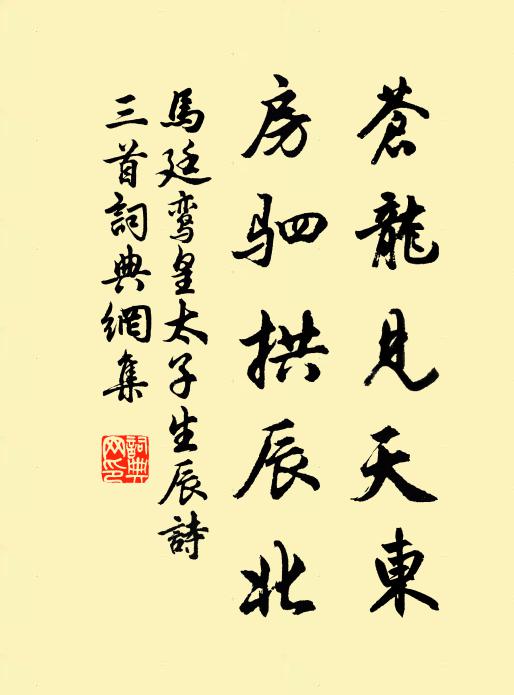 蒼龍見天東
房駟拱辰北
馬廷鸾皇太子生辰詩
三首詞典網集
詞典
网印